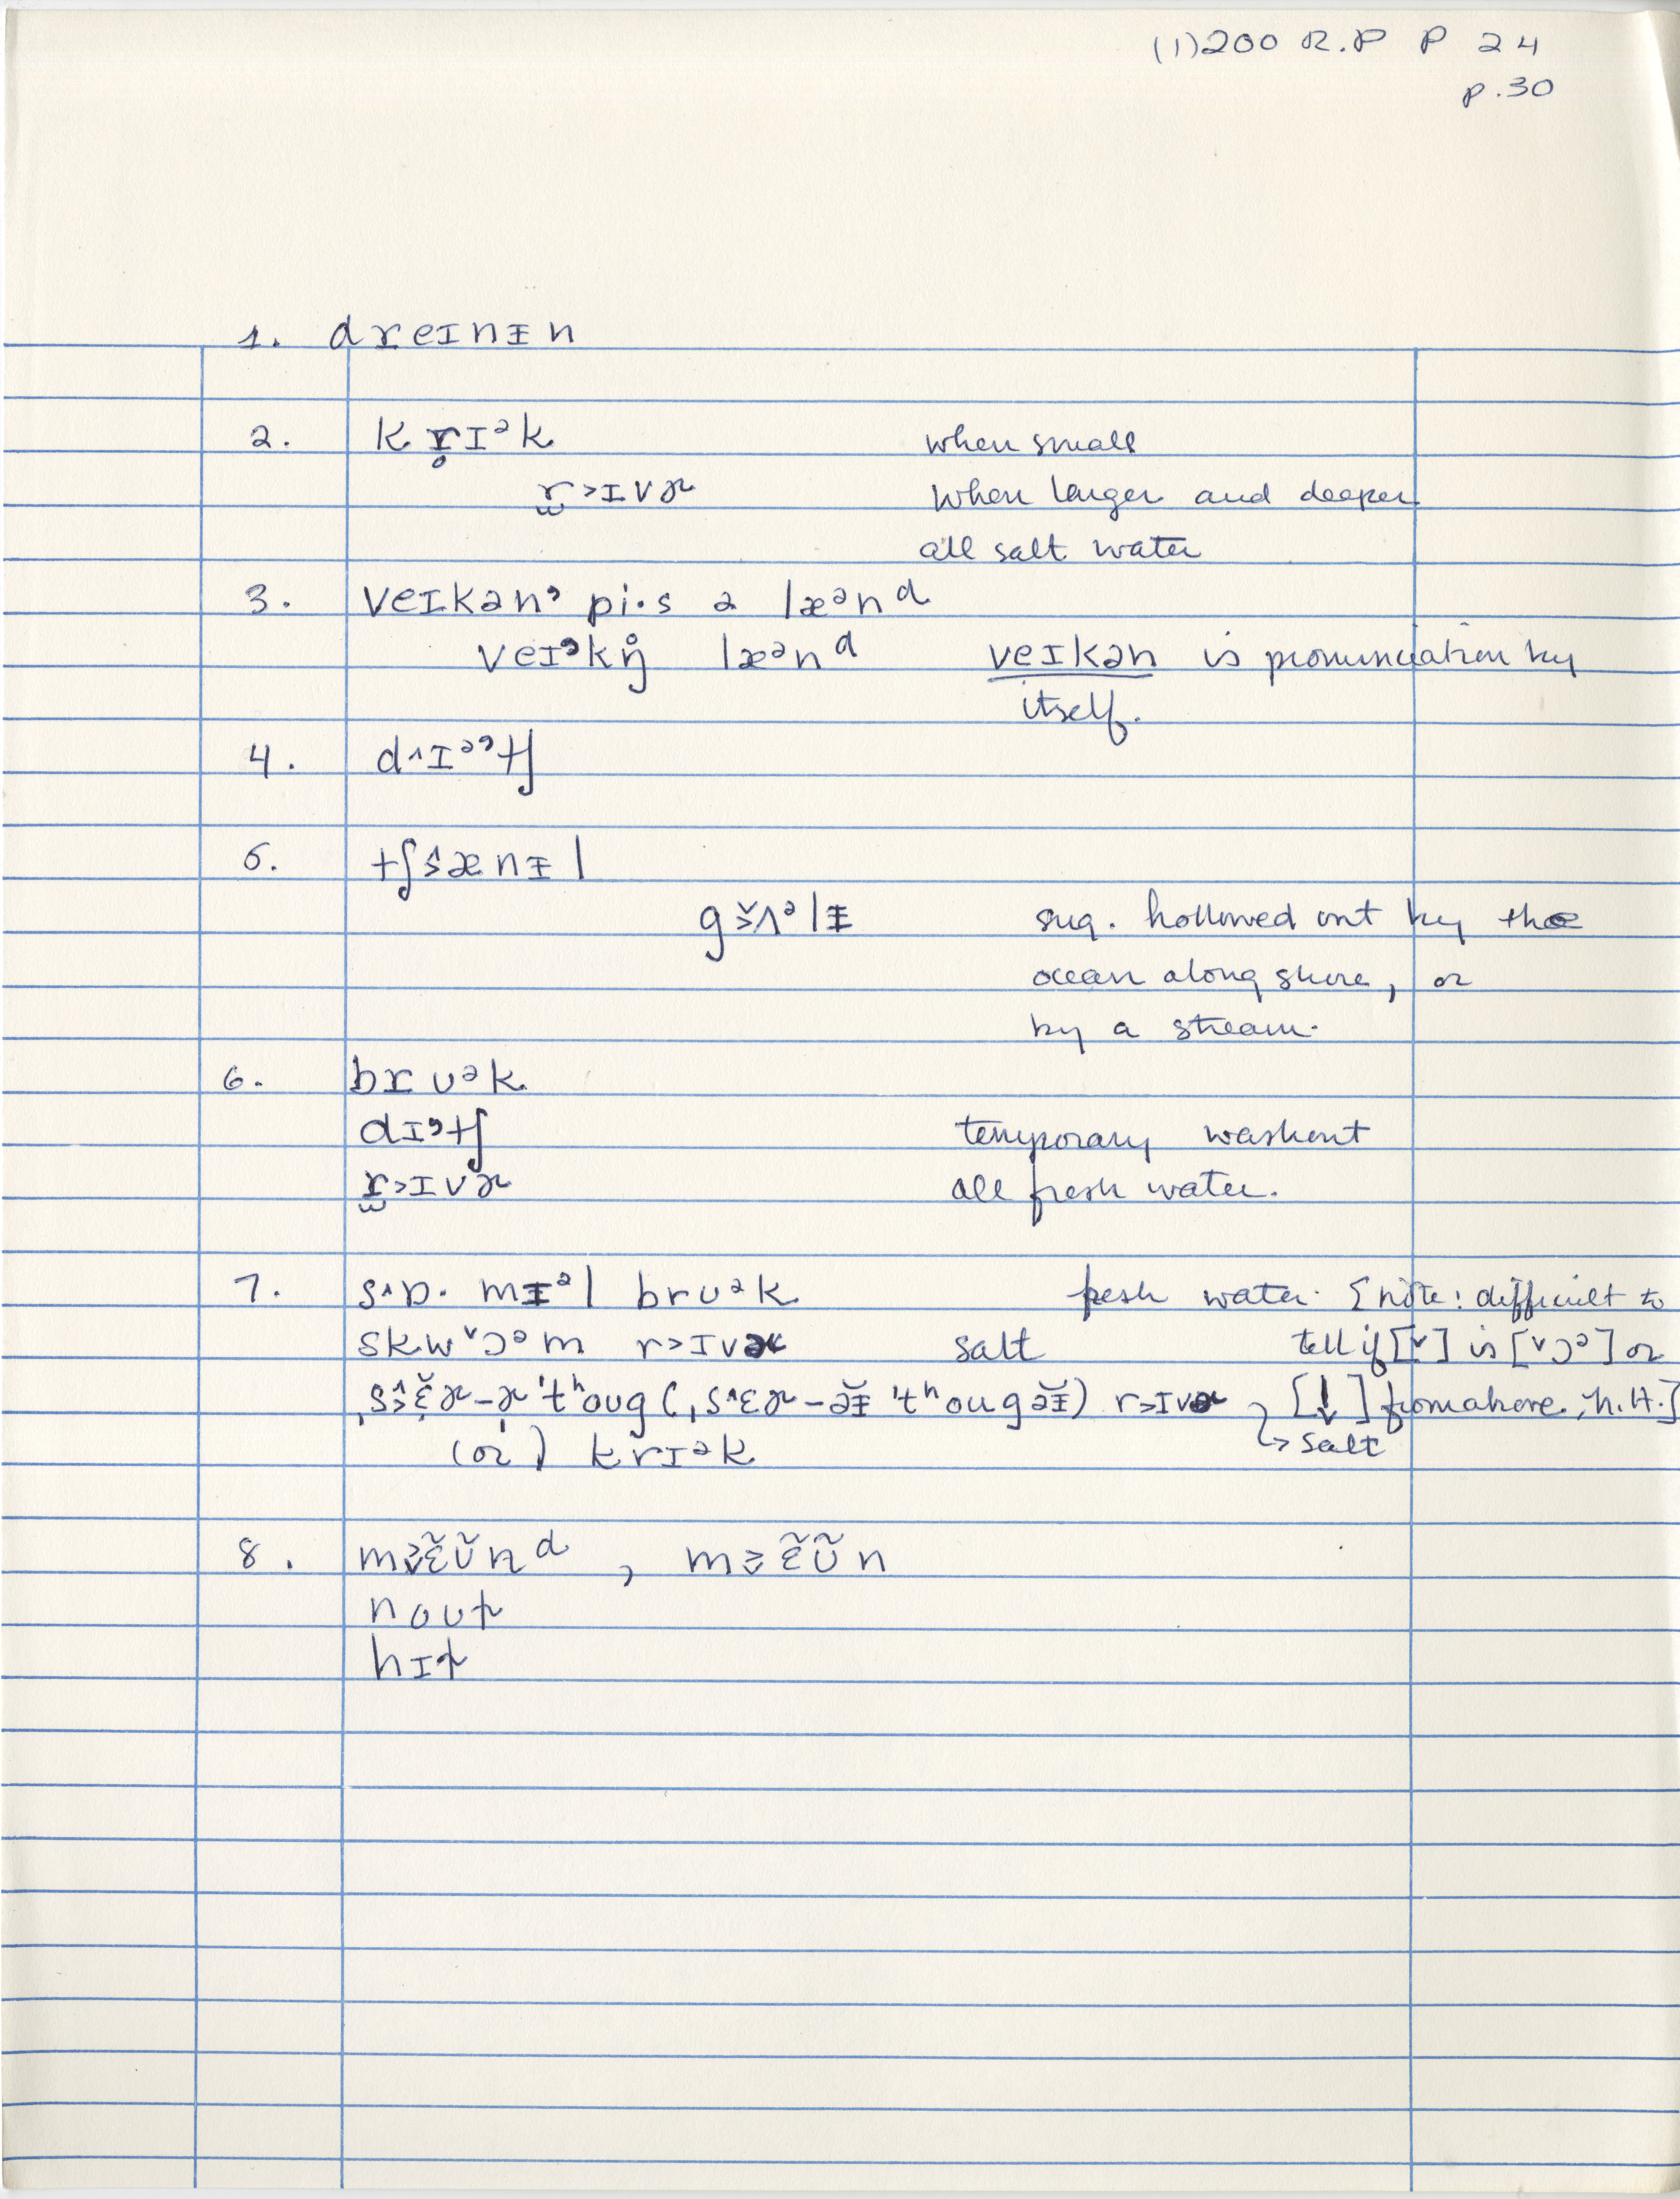 (1)200 R.P P 24
p.30
1. dreɪnɨn
2. k r̥ɪᵊk when small
r̫˃ɪvɚ when larger and deeper
all salt water
3. veɪkənˀ pi·s ə læᵊnᵈ
veɪˀkŋ̊ læᵊnᵈ veɪkən is pronunciation by
itself.
4. d˄ɪᵊˀtʃ
5. tʃænɨl
gʌᵊlɨ sug. hollowed out by the
ocean along shore, or
by a stream.
6. brʊᵊk
dɪˀtʃ temporary washout
r̫˃ɪvɚ all fresh water.
7. s˄ɒ· mɨᵊl brʊᵊk fresh water. [note: difficult to
skw˅ɔᵊm r˃ɪvɚ salt tell if [˅] is [˅ɔᵊ] or
ˌsɛɚ-ɚ'tʰoug (ˌs˄ɛɚ-əɨ̆ 'tʰougəɨ̆) r˃ɪvɚ [↓] from above, h.H.]
(or) krɪᵊk ↳ salt
8. mɛ̃ʊ̃nᵈ, mɛ̃ʊ̃n
noʊt
hɪt